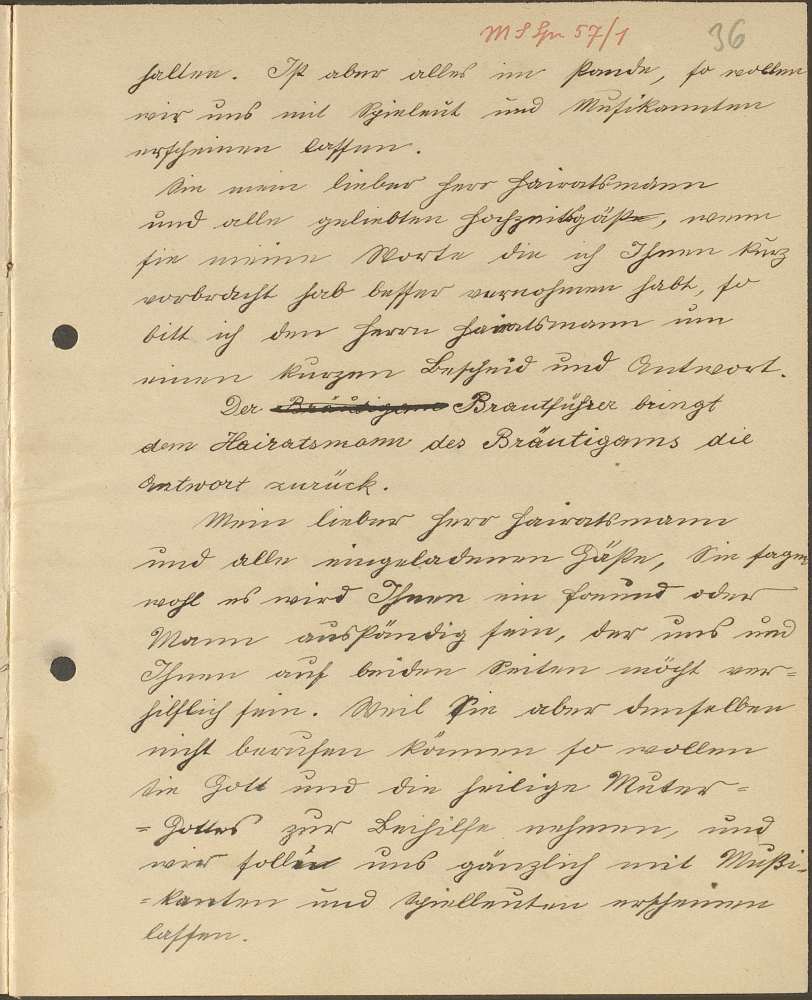 36
halten. Ist aber alles im stande, so wollen
wir uns mit Spieleut und Musikannten
erscheinen lassen.
Sie mein lieber Herr Hairatsmann
und alle geliebten Hochzeitsgäste, wenn
sie meine Worte die ich Ihnen kurz
vorbracht hab besser vernohmen habt, so
bitt ich den Herrn Hairatsmann um
einen kurzen Bescheid und Antwort.
Der Bräutigam Brautführer bringt
dem Hairatsmann des Bräutigams die
Antwort zurück.
Mein lieber Herr Hairatsmann
und alle eingeladenen Gäste, Sie sagen
wohl es wird Ihnen ein freund oder
Mann auständig sein, der uns und
Ihnen auf beiden Seiten möcht ver=
hilflich sein. Weil Sie aber denselben
nicht berufen können so wollen
Sie Gott und die heilige Muter=
=Gottes zur Beihilfe nehmen, und
wir sollen uns gänzlich mit Mußi=
=kanten und Spielleuten erscheinen
lassen.